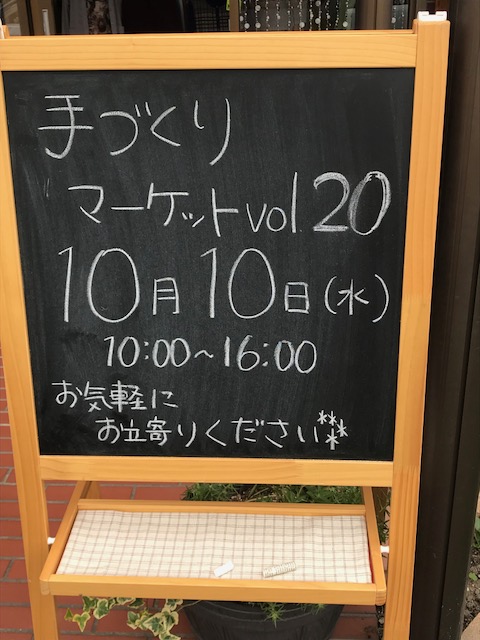 手づくり
マーケットvol.20
10月10日(水)
10:00~16:00
お気軽に
お立寄りください***